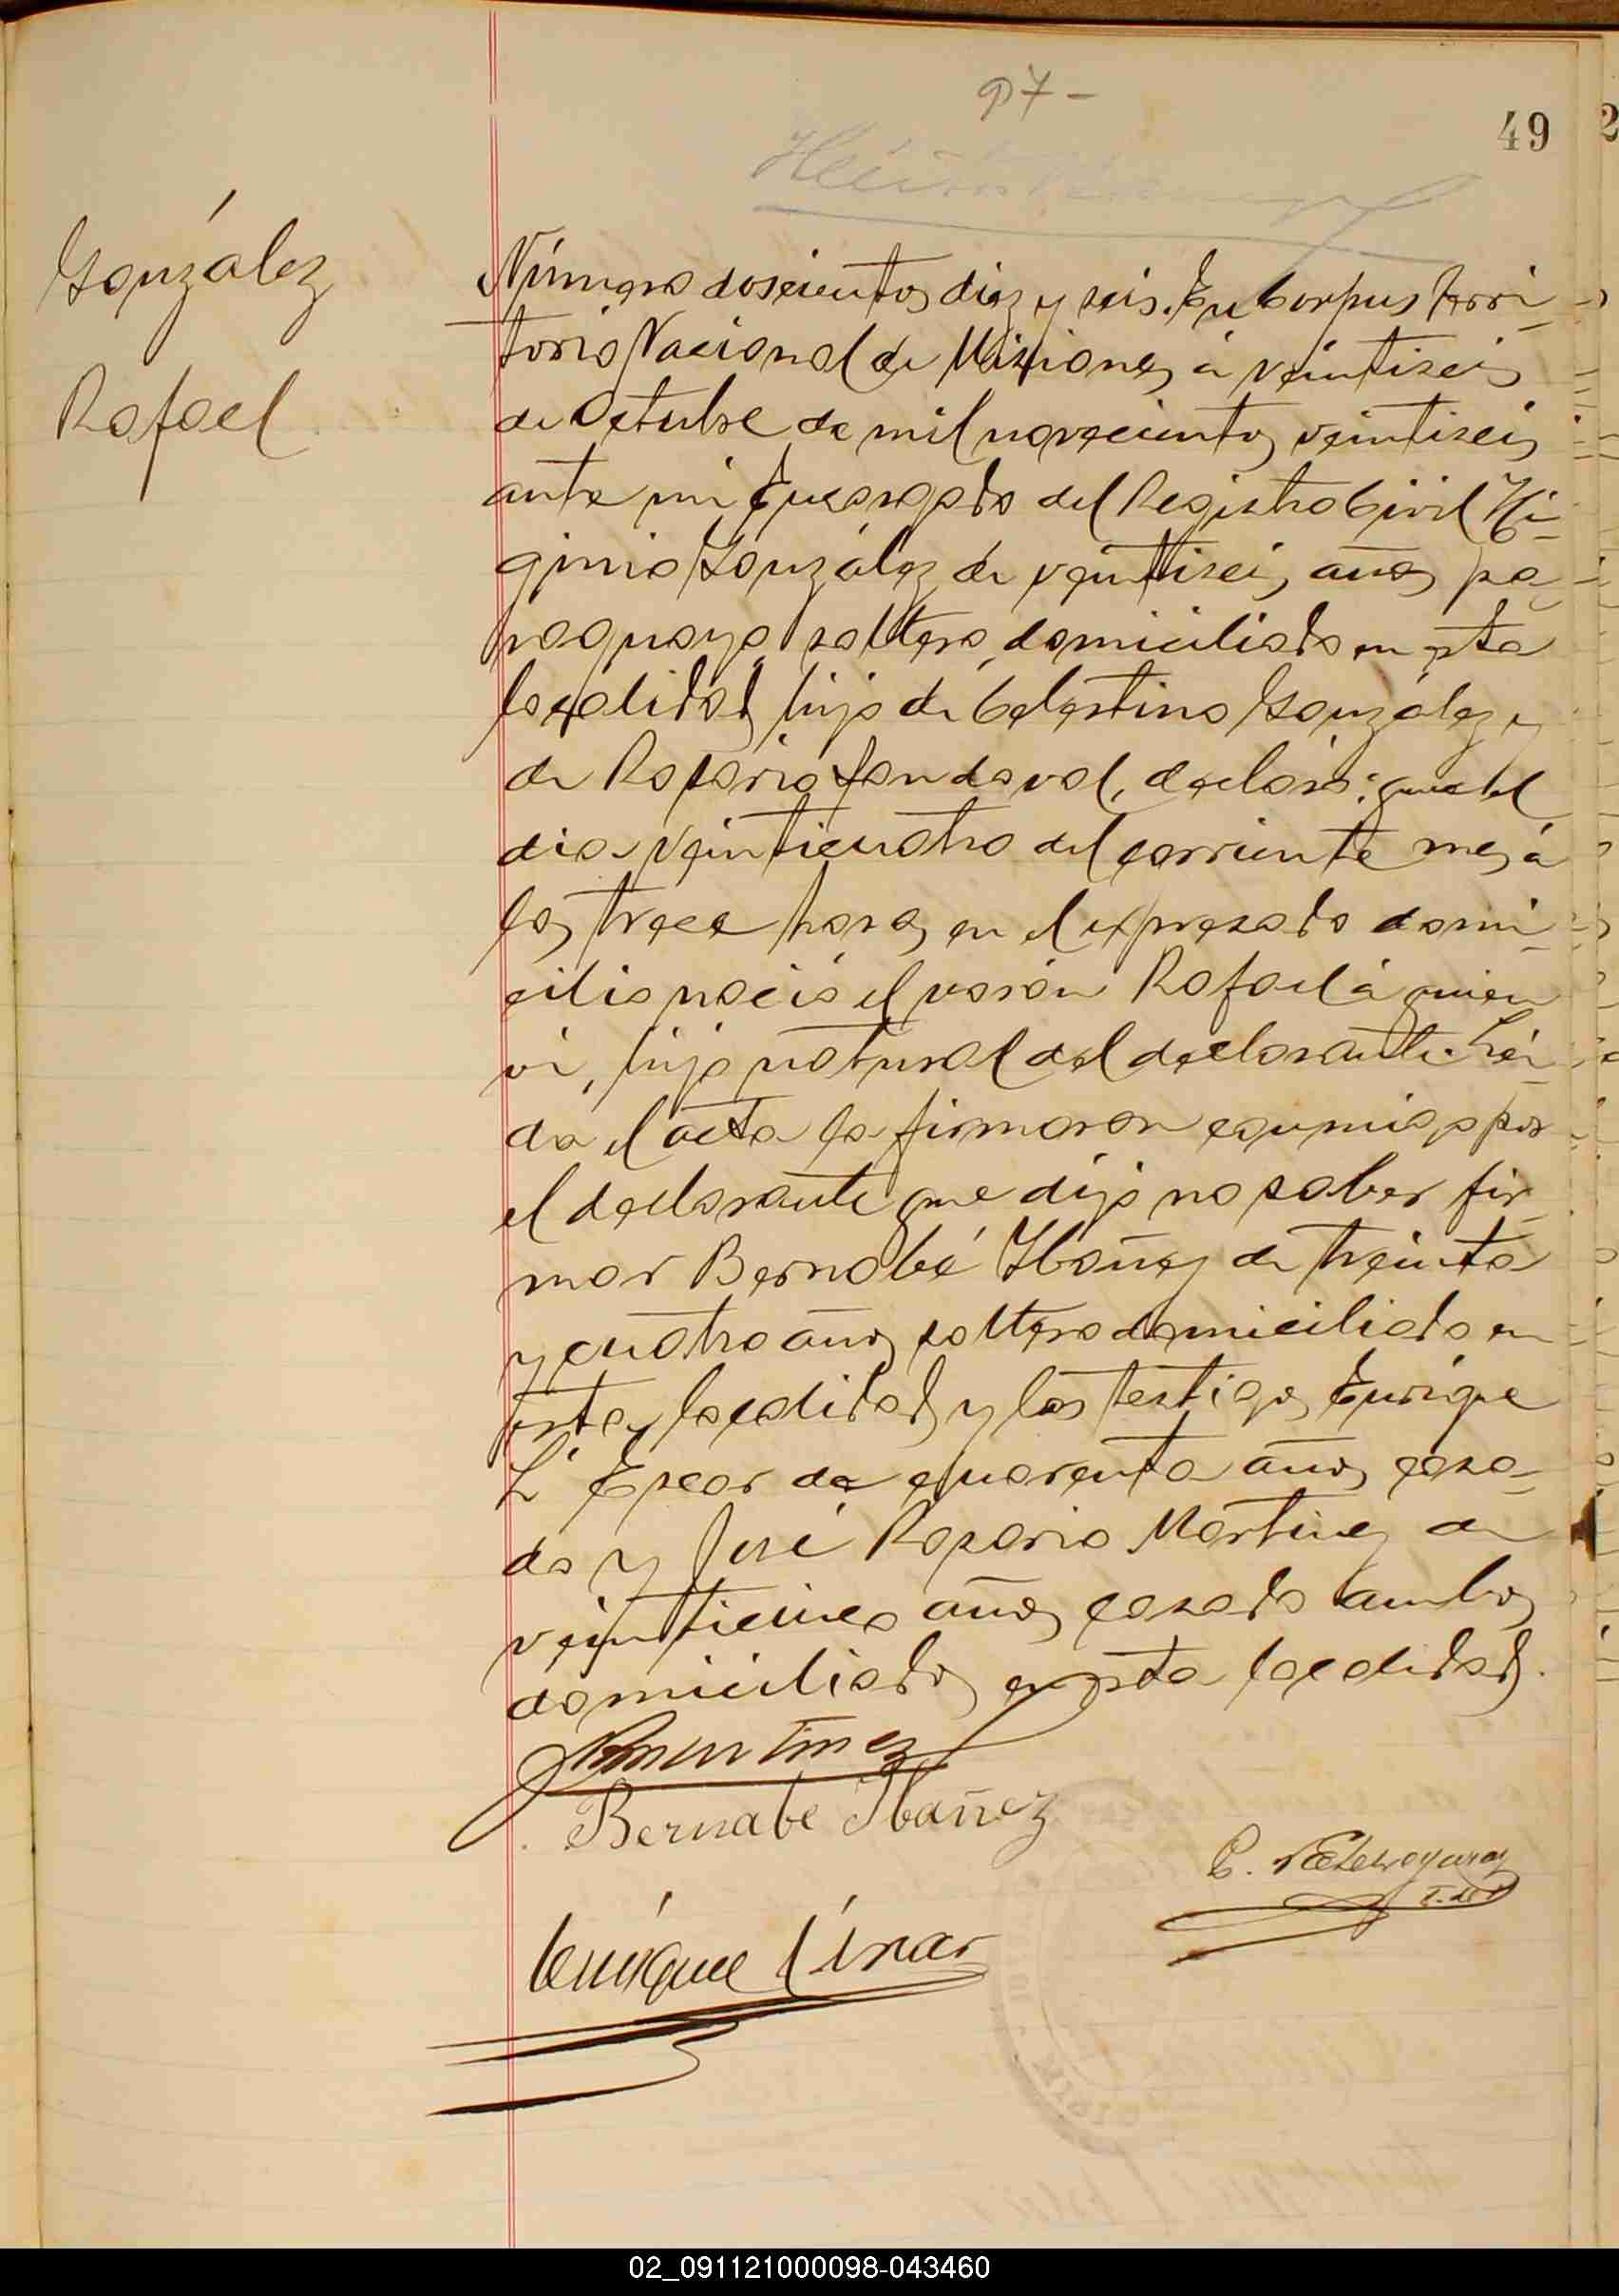 97-
49
González
Rafael
Número doscientos diez y seis. En Corpus Terri-
torio Nacional de Misiones a veintiseis
de Octubre de mil novecientos veintiseis
ante mi Encargado del Registro Civil Hi-
ginio González de veintiseis años pa-
raguayo soltero, domiciliado en esta
localidad hijo de Celestino González y
de Rosario Sandoval, declaró: que el
dia veinticuatro del corriente mes á
las trece horas en el expresado domi-
cilio nació el varón Rafael á quien
vi, hijo natural del declarante. Léi-
da el acta la firmaron conmigo por
el declarante que dijo no saber fir-
mar Bernabé Ibañez de treinta
y cuatro años soltero domiciliado en
esta localidad y los testigos Enrique
L' Escar de cuarenta años casa-
do y José Rosario Martinez de
veinticinco años casado ambos
domiciliados en esta localidad.
Martinez
Bernabe Ibañez
Enrique
02_091121000098-043460